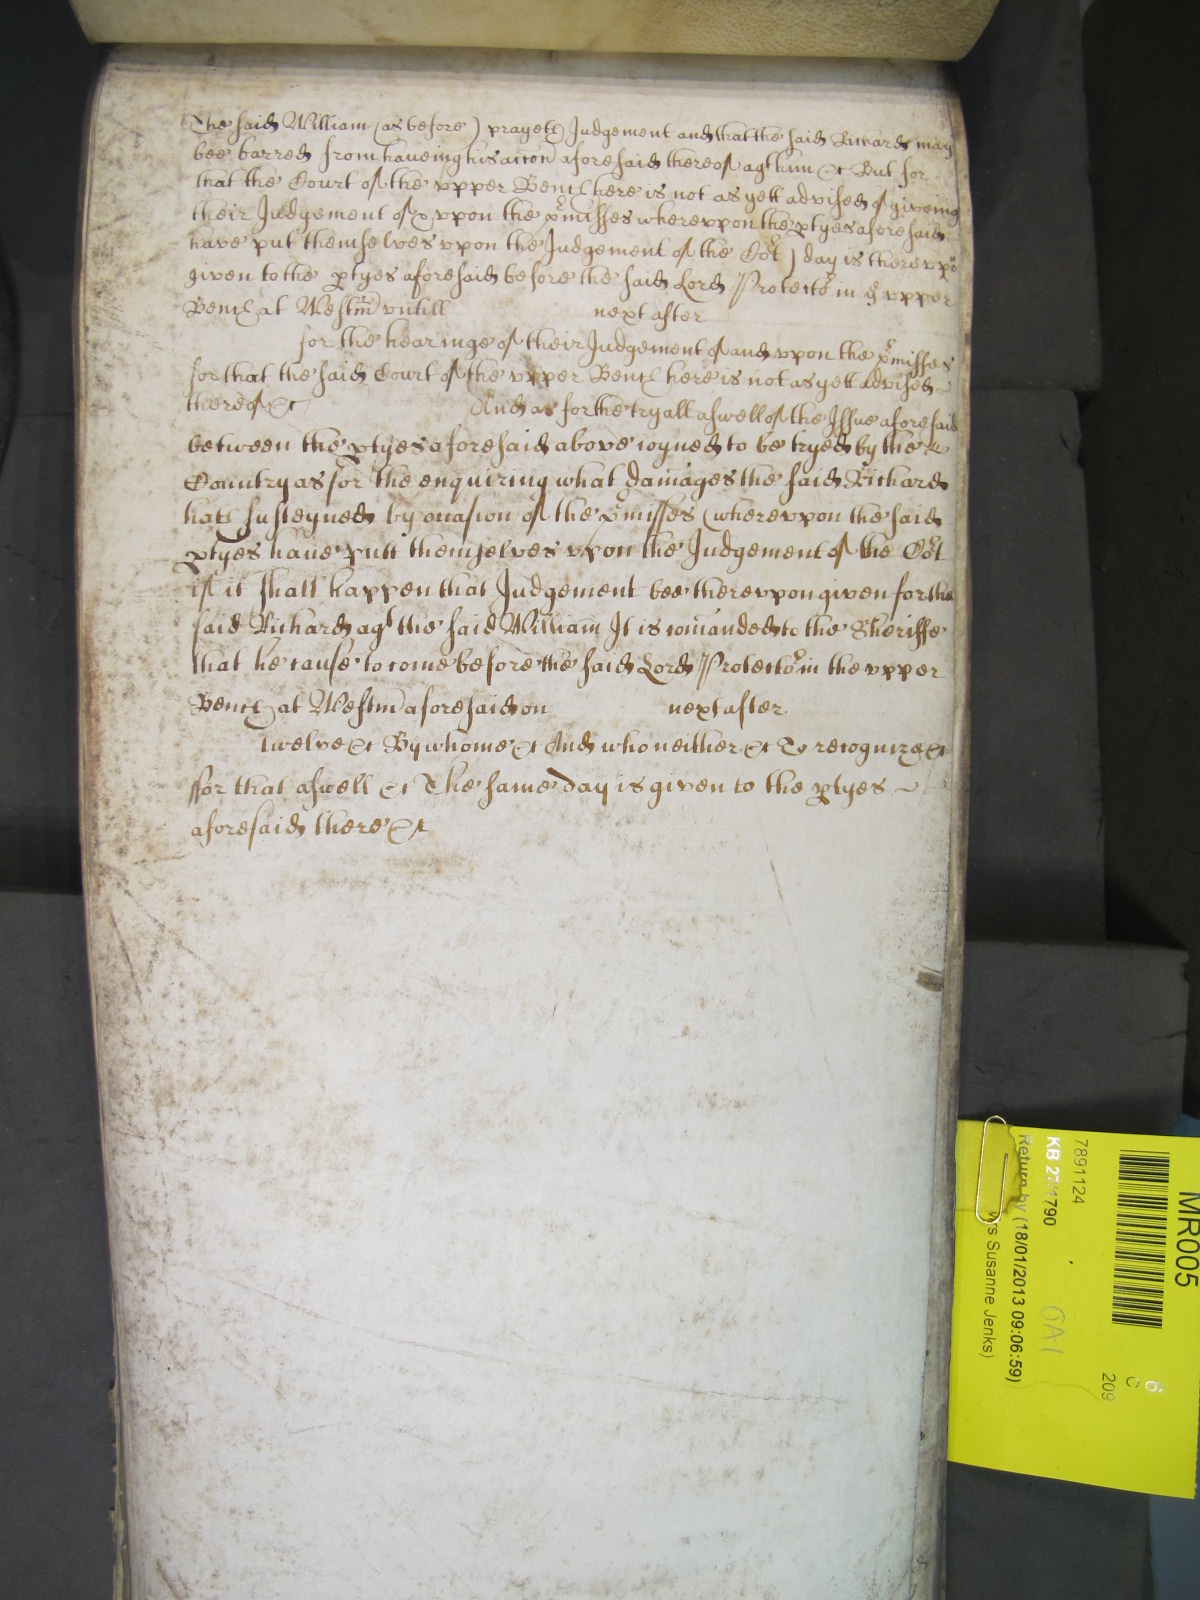 The said William (as before) prayeth Judgement and that the said Richard may
bee barred from haveing his accon aforesaid thereof agt him &c But for
that the Court of the vpper Bench here is not as yett advised of giveing
their Judgement of & vpon the pmisses wherevpon the ptyes aforesaid
have put themselves vpon the Judgement of the Cort) day is therevpo
given to the ptyes aforesaid before the said Lord Protector in ye vpper
Bench at Westm vntill next after
for the hearinge of their Judgement of and vpon the pmisses
for that the said Court of the vpper Bench here is not as yett advised
thereof &c And as for the tryall aswell of the Issue aforesaid
betweene the ptyes aforesaid above ioyned to be tryed by the
Countrey as for the enquiring what damages the said Richard
hath susteyned by occasion of the pmisses (wherevpon the said
ptyes have putt themselves vpon the Judgement of the Cort
if it shall happen that Judgement bee therevpon given for the
said Richard agt the said William It is comanded to the Sheriffe
that he cause to come before the said Lord Protector in the vpper
Bench at Westm aforesaid on next after
twelve &c By whome &c And who neither &c To recognize &c
ffor that aswell &c The same day is given to the ptyes
aforesaid there &c
MR005
7891124
KB 27/1790
Return by (18/01/2013 09:06:59)
Susanne Jenks)
6
C
209